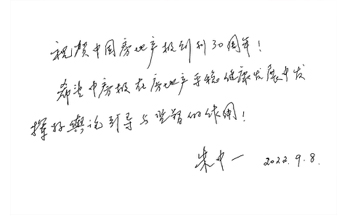 祝贺中国房地产报创刊30周年！
希望中房报在房地产平稳健康发展中发
挥好舆论引导与监督的作用！
朱中一 2022.9.8.